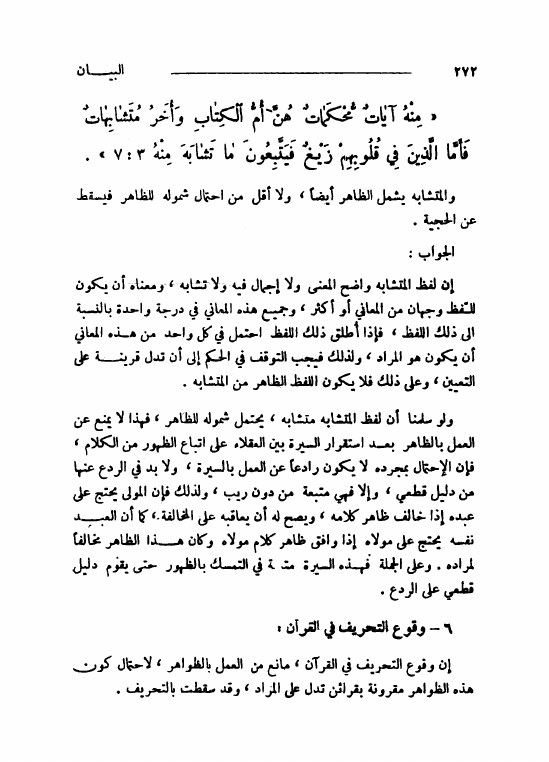 ٢٧٢ البيـــان
« مِنْهُ آيَاتٌ مُحْكَمَاتٌ هُنَّ أُمُّ الْكِتَابِ وَأُخَرُ مُتَشَابِهَاتٌ
فَأَمَّا الَّذِينَ فِي قُلُوبِهِمْ زَيْغٌ فَيَتَّبِعُونَ مَا تَشَابَهَ مِنْهُ ٣ : ٧ » .
والمتشابه يشمل الظاهر أيضاً ، ولا أقل من احتمال شموله للظاهر فيسقط
عن الحجية .
الجواب :
إن لفظ المتشابه واضح المعنى ولا إجمال فيه ولا تشابه ، ومعناه أن يكون
للفظ وجهان من المعاني أو أكثر ، وجميع هذه المعاني في درجة واحدة بالنسبة
الى ذلك اللفظ ، فإذا أطلق ذلك اللفظ احتمل في كل واحد من هـذه المعاني
أن يكون هو المراد ، ولذلك فيجب التوقف في الحكم إلى أن تدل قرينـــة على
التعيين ، وعلى ذلك فلا يكون اللفظ الظاهر من المتشابه .
ولو سلمنا أن لفظ المتشابه متشابه ، يحتمل شموله للظاهر ، فهذا لا يمنع عن
العمل بالظاهر بعـد استقرار السيرة بين العقلاء على اتباع الظهور من الكلام ،
فإن الإحتمال بمجرده لا يكون رادعاً عن العمل بالسيرة ، ولا بد في الردع عنها
من دليل قطعي ، وإلا فهي متبعة من دون ريب ، ولذلك فإن المولى يحتج على
عبده إذا خالف ظاهر كلامه ، ويصح له أن يعاقبه على المخالفة ، كما أن العبـــد
نفسه يحتج على مولاه إذا وافق ظاهر كلام مولاه وكان هـــذا الظاهر مخالفاً
لمراده . وعلى الجملة فهـذه السيرة في التمسك بالظهور حتى يقوم دليل
قطعي على الردع .
٦ – وقوع التحريف في القرآن :
إن وقوع التحريف في القرآن ، مانع من العمل بالظواهر ، لاحتمال كون
هذه الظواهر مقرونة بقرائن تدل على المراد ، وقد سقطت بالتحريف .